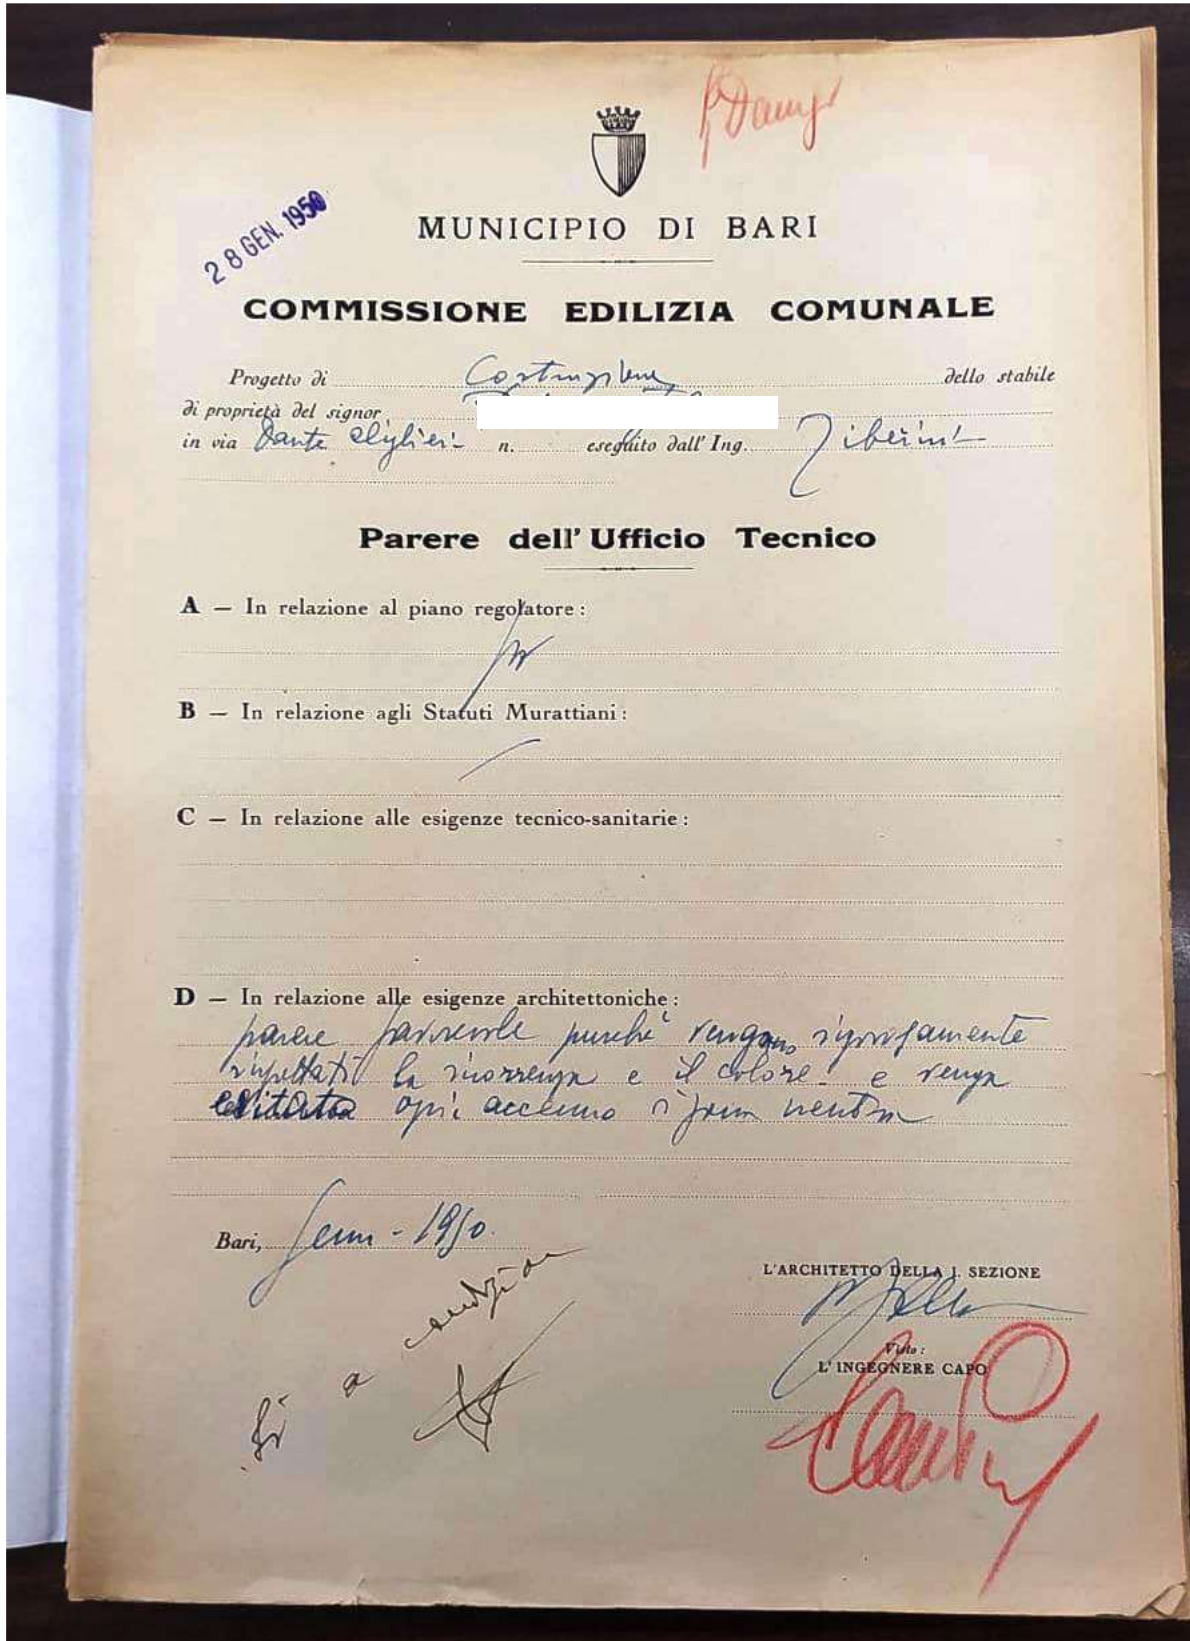 28 GEN. 1950
MUNICIPIO DI BARI
COMMISSIONE EDILIZIA COMUNALE
Progetto di Costruzione dello stabile
di proprietà del signor
in via Dante Alighieri n. eseguito dall' Ing.
Parere dell' Ufficio Tecnico
A — In relazione al piano regolatore :
B — In relazione agli Statuti Murattiani :
C — In relazione alle esigenze tecnico-sanitarie :
D — In relazione alle esigenze architettoniche :
parere favorevole purchè vengano rigorosamente
rispettati la ricorrenza e il colore e venga
evitato ogni accenno
Bari, Genn - 1950.
Si a condizione
L'ARCHITETTO DELLA I. SEZIONE
Visto :
L' INGEGNERE CAPO